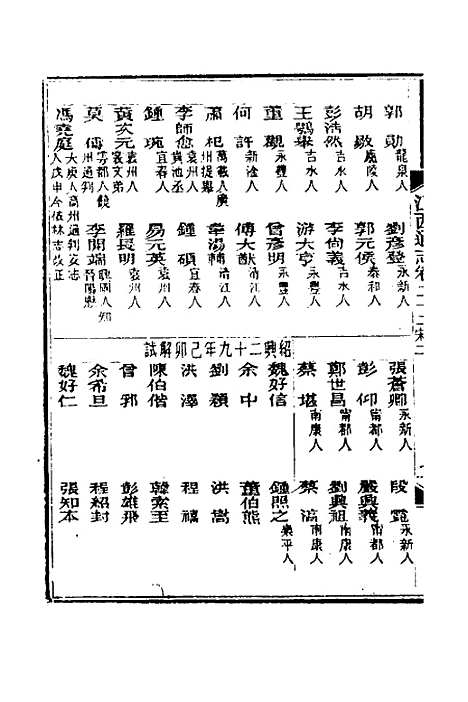 江西通志卷二十二
郭勛龍泉人 劉彥登永新人
胡 廬陵人 郭元俟泰和人
彭浩然吉水人 李尚義吉水人
王鶚舉吉水人 游大亨永豐人
董觀永豐人 曾彥明永豐人
何許新淦人 傅大猷清江人
蕭杞萬載人廣州提舉 韋湯輔清江人
李師愈袁州人貴池丞 鍾碩宜春人
鍾琬宜春人 易元英袁州人
黃次元袁州人袤文弟 羅長明袁州人
莫傅雩都人饒州通判 李開端龍岡人知晉陽縣
馮堯庭大庾人高州通判安志人戊申今依林志改正
張蒼卿永新人 段霓永新人
彭仰甯都人 嚴興義甯都人
鄭世昌甯都人 劉興祖南康人
蔡堪南康人 蔡滈南康人
紹興二十九年己卯解試
魏好信 鍾照之樂平人
余中 董伯熊
劉穎 洪嵩
洪澤 程禧
陳伯偕 韓索王
曾郛 彭雄飛
余希旦 程紹封
魏好仁 張知本